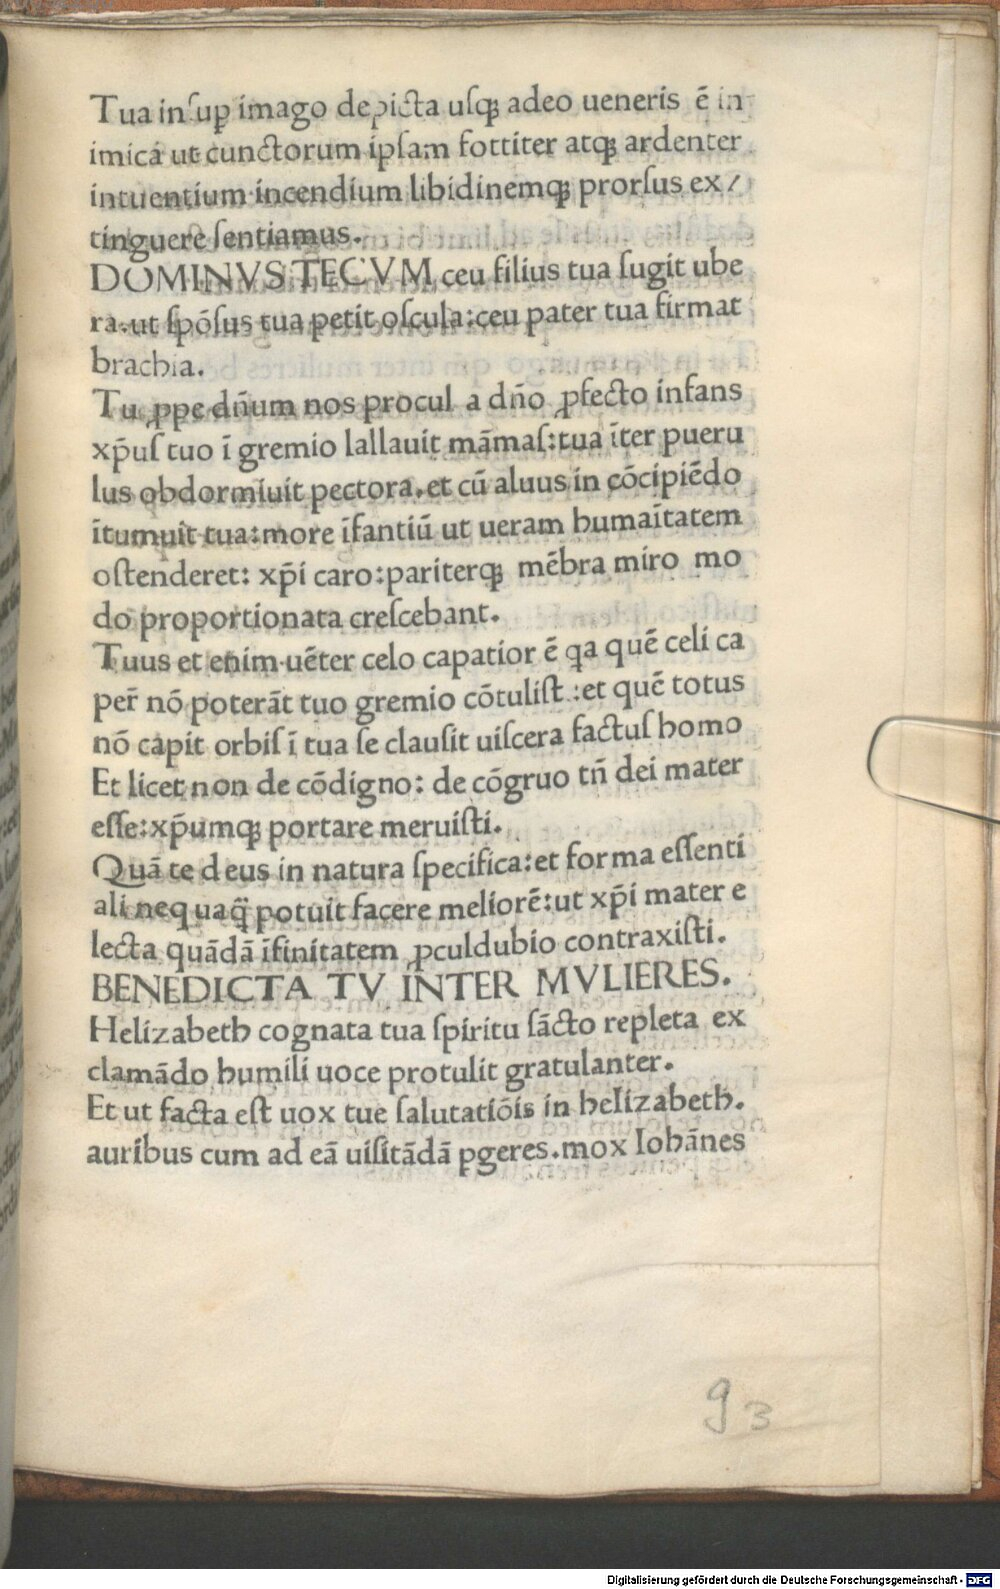 Tua inſuꝑ imago depicta uſqꝫ adeo ueneris ē in
imica ut cunctorum ipſam fottiter atqꝫ ardenter
intuentium incendium libidinemqꝫ prorſus ex/
tinguere ſentiamus.
DOMINVS TECVM ceu filius tua ſugit ube
ra.ut ſpōſus tua petit oſcula:ceu pater tua firmat
brachia.
Tu ꝓppe dn̄um nos procul a dn̄o ꝓfecto infans
xp̄uſ tuo ī gremio lallauit māmaſ:tua īter pueru
lus obdormiuit pectora.et cū aluus in cōcipiēdo
ītumuit tua:more īfantiū ut ueram humaītatem
oſtenderet: xp̄i caro:pariterqꝫ mēbra miro mo
do proportionata creſcebant.
Tuus et enim uēter celo capatior ē qa quē celi ca
per̄ nō poterāt tuo gremio cōtuliſt :et quē totus
nō capit orbiſ ī tua ſe clauſit uiſcera factuſ homo
Et licet non de cōdigno: de cōgruo tn̄ dei mater
eſſe:xp̄umqꝫ portare meruiſti.
Quā te deus in natura ſpecifica:et forma eſſenti
ali nequaq̄̈ potuit facere meliorē:ut xp̄i mater e
lecta quādā īfinitatem ꝓculdubio contraxiſti.
BENEDICTA TV INTER MVLIERES.
Helizabeth cognata tua ſpiritu ſācto repleta ex
clamādo humili uoce protulit gratulanter.
Et ut facta eſt uox tue ſalutatiōis in helizabeth.
auribus cum ad eā uiſitādā ꝑgeres.mox Iohānes
93
Digitalisierung gefördert durch die Deutsche Forschungsgemeinschaft - DFG